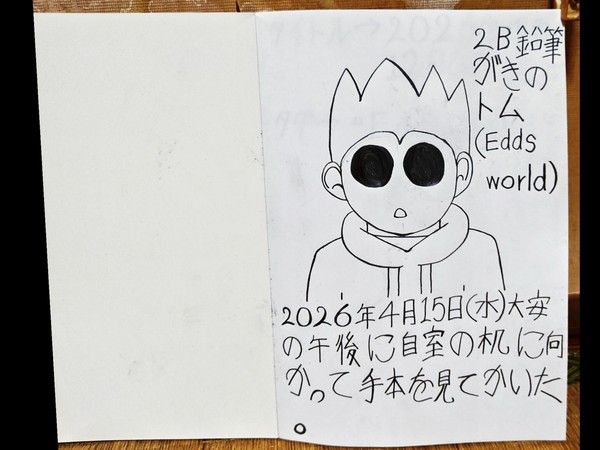 2B鉛筆
がきの
トム
(Edds
world)
2026年4月15日(水)大安
の午後に自室の机に向
かって手本を見てかいた
。